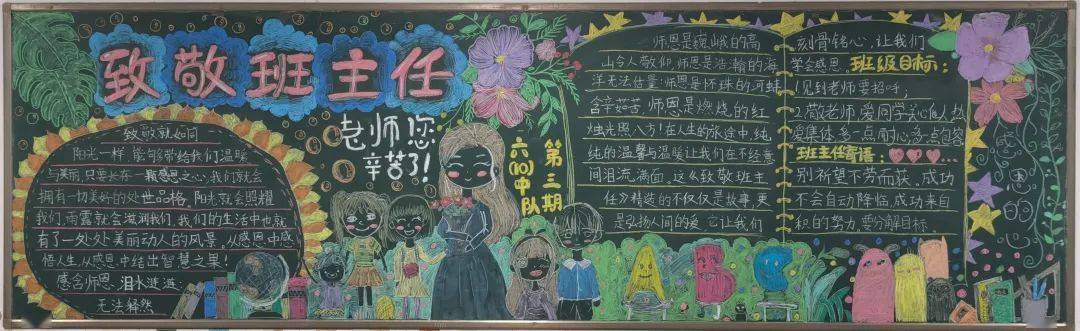 致敬班主任
老师您
辛苦了!
致敬就如同
阳光一样,能够带给我们温暖
与美丽,只要长存一颗感恩之心,我们就会
拥有一切美好的处世品格。阳光就会照耀
我们,雨露就会滋润我们,我们的生活中也就
有了一处处美丽动人的风景,从感恩中感
悟人生,从感恩中结出智慧之果!
感念师恩,泪水涟涟
无法释然
第三期
六(10)中队
师恩是巍峨的高
山令人敬仰,师恩是浩瀚的海
洋无法估量!师恩是怀珠的河蚌
含辛茹苦,师恩是燃烧的红
烛光照八方!在人生的旅途中,纯
纯的温馨与温暖让我们在不经意
间泪流满面。这《致敬班主
任》精装的不仅仅是故事,更
是弘扬人间的爱,它让我们
刻骨铭心,让我们
学会感恩。班级目标:
1.见到老师要招呼;
2.敬老师,爱同学,关心他人,热
爱集体,多一点耐心,多一点包容
班主任寄语:
别祈望不劳而获。成功
不会自动降临,成功来自
积的努力,要分解目标。
A B C